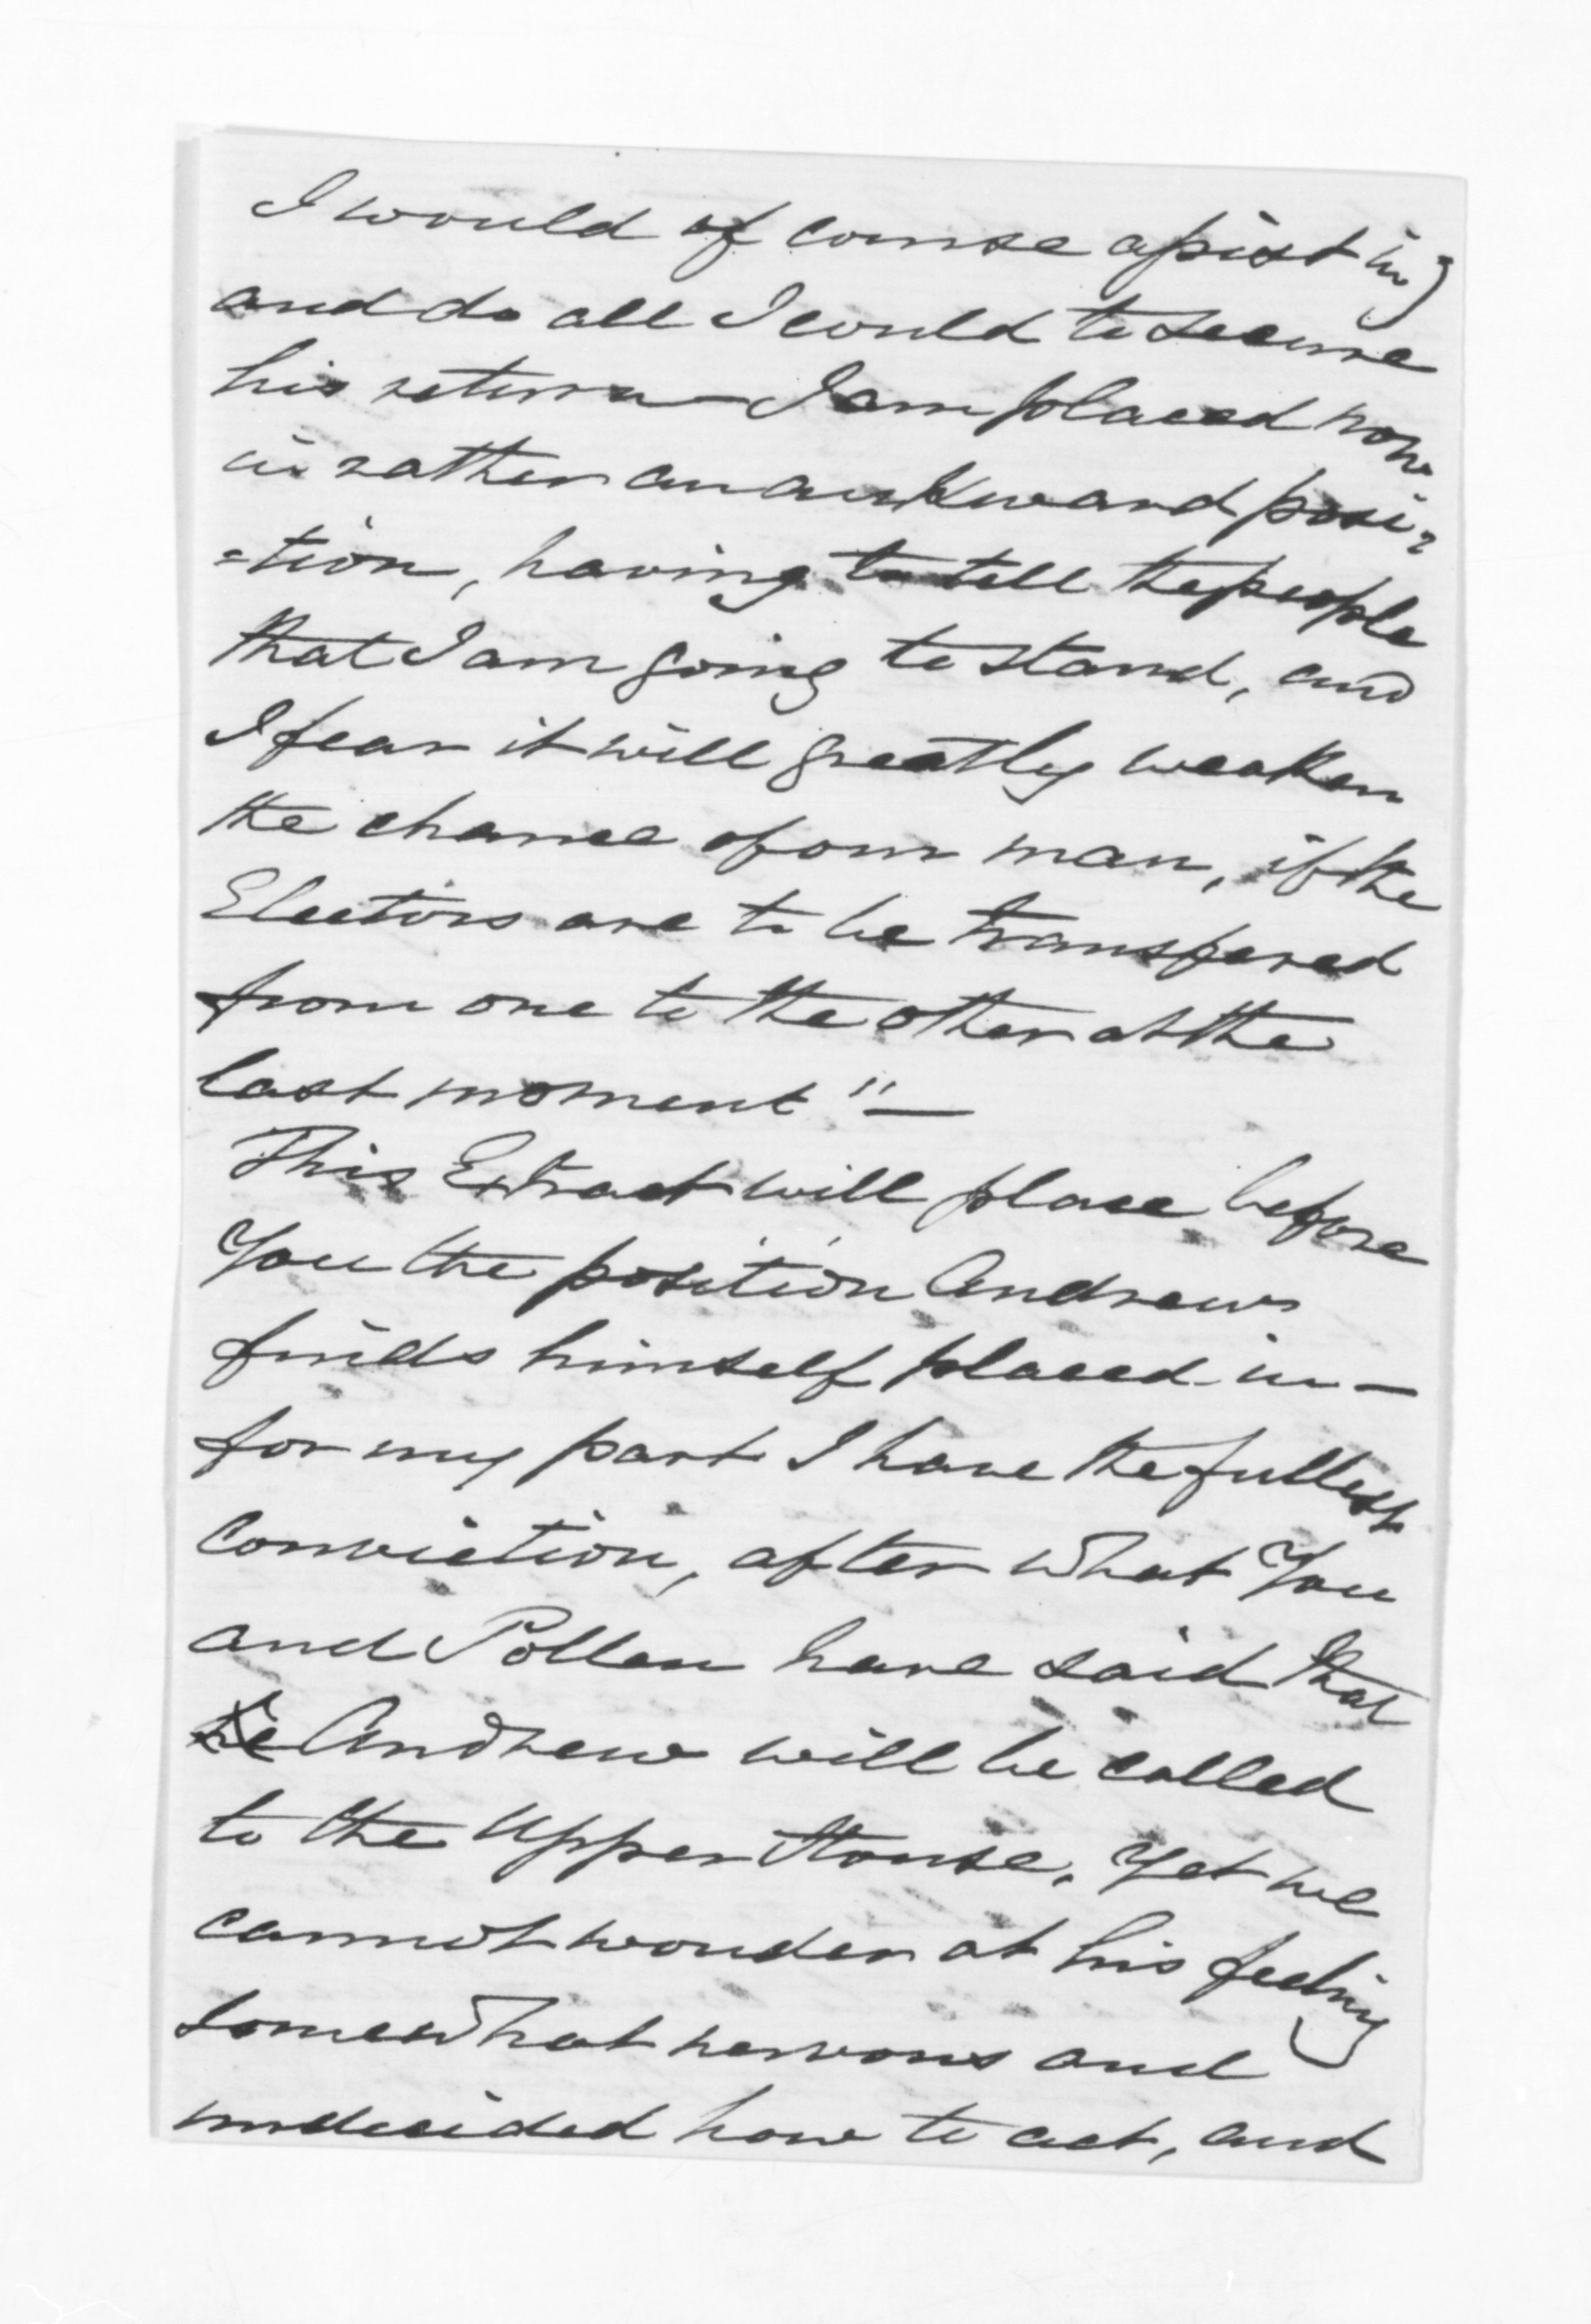 I would of course assist in,
and do all I could to secure
his return — I am placed now
in rather an awkward posi=
=tion, having to tell the people
that I am going to stand, and
I fear it will greatly weaken
the chance of our man, if the
Electors are to be transfered
from one to the other at the
last moment" —
This Extract will place before
You the position Andrew
finds himself placed in —
for my part I have the fullest
Conviction, after what You
and Pollen have said that
he Andrew will be called
to the Upper House, Yet we
cannot wonder at his feeling
somewhat nervous and
undecided how to act, and